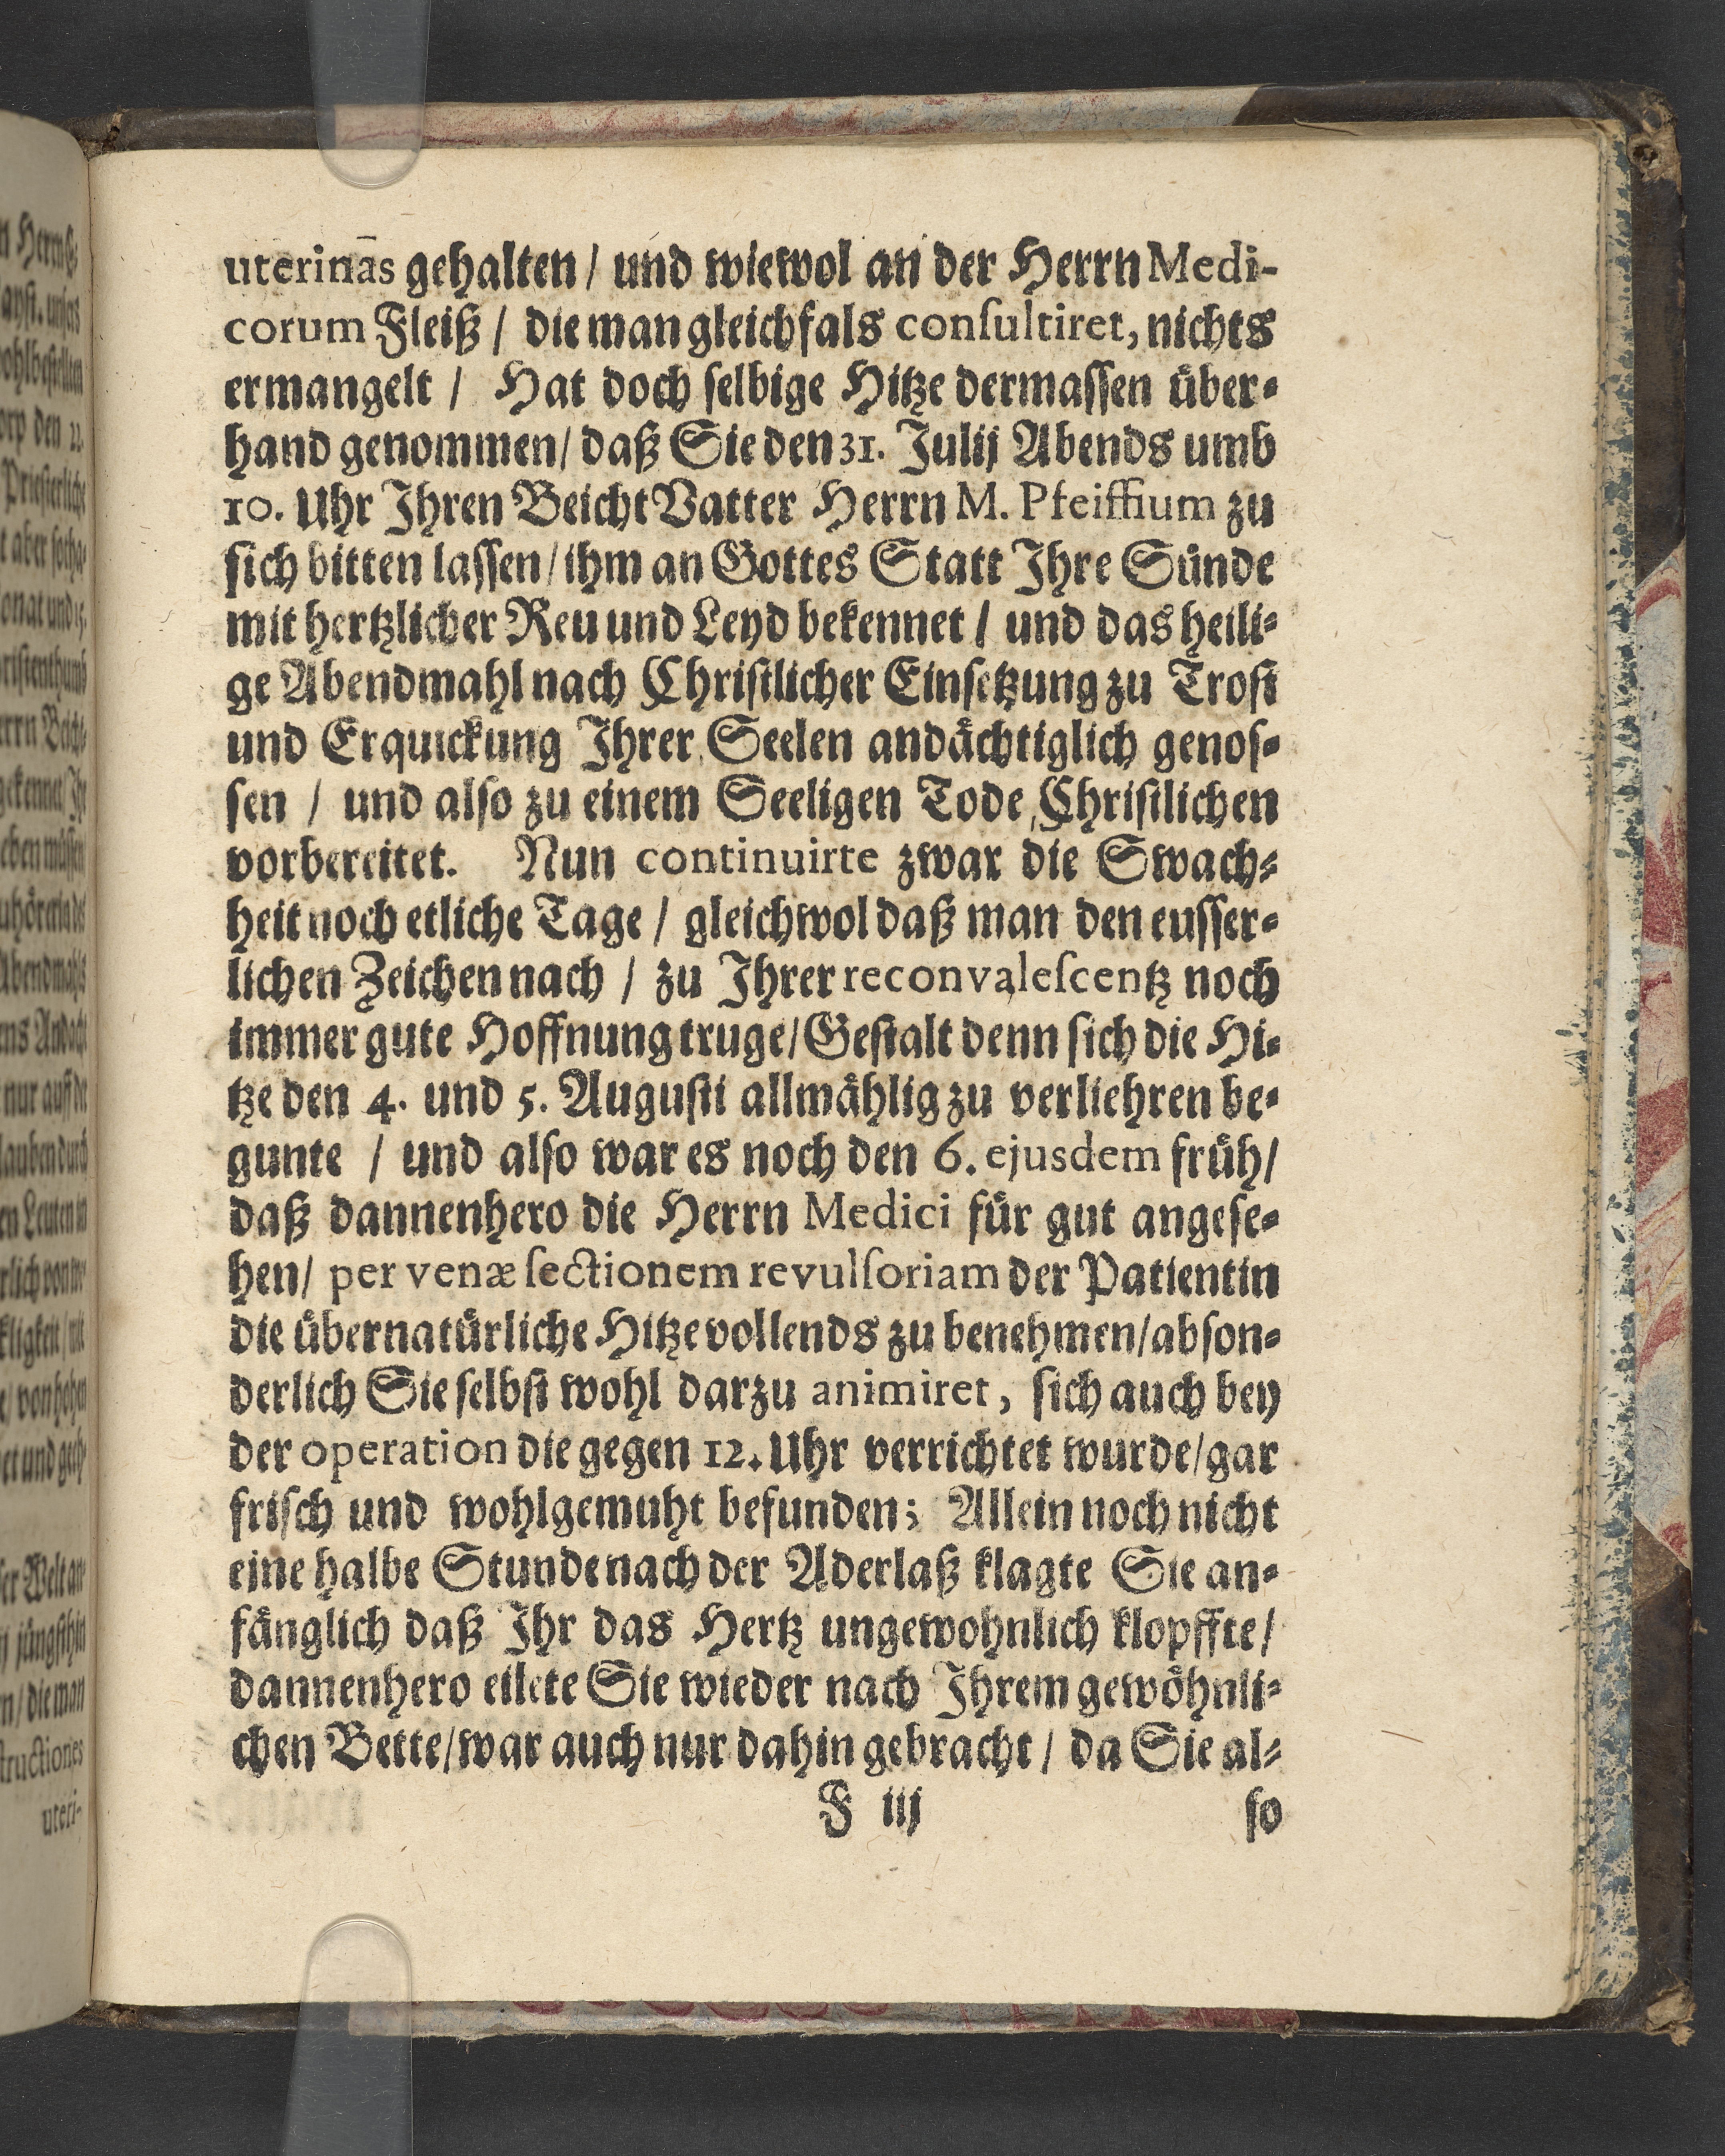 uterinas gehalten / und wiewol an der Herrn Medi-
corum Fleiß / die man gleichfals conſultiret, nichts
ermangelt / Hat doch ſelbige Hitze dermaſſen uͤber-
hand genommen / daß Sie den 31. Julij Abends umb
10. Uhr Ihren Beicht Vatter Herrn M. Pfeiffium zu
ſich bitten laſſen / ihm an Gottes Statt Ihre Suͤnde
mit hertzlicher Reu und Leyd bekennet / und das heili-
ge Abendmahl nach Chriſtlicher Einſetzung zu Troſt
und Erquickung Ihrer Seelen andaͤchtiglich genoſ-
ſen / und alſo zu einem Seeligen Tode Chriſtlichen
vorbereitet. Nun continuirte zwar die Swach-
heit noch etliche Tage / gleichwol daß man den euſſer-
lichen Zeichen nach / zu Ihrer reconvaleſcentz noch
immer gute Hoffnung truge / Geſtalt denn ſich die Hi-
tze den 4. und 5. Auguſti allmaͤhlig zu verliehren be-
gunte / und alſo war es noch den 6. ejusdem fruͤh /
daß dannenhero die Herrn Medici fuͤr gut angeſe-
hen / per venæ ſectionem revulſoriam der Patientin
die uͤbernatuͤrliche Hitze vollends zu benehmen / abſon-
derlich Sie ſelbſt wohl darzu animiret, ſich auch bey
der operation die gegen 12. Uhr verrichtet wurde / gar
friſch und wohlgemuht befunden; Allein noch nicht
eine halbe Stunde nach der Aderlaß klagte Sie an-
faͤnglich daß Ihr das Hertz ungewohnlich klopffte /
dannenhero eilete Sie wieder nach Ihrem gewoͤhnli-
chen Bette / war auch nur dahin gebracht / da Sie al-
F iij
ſo